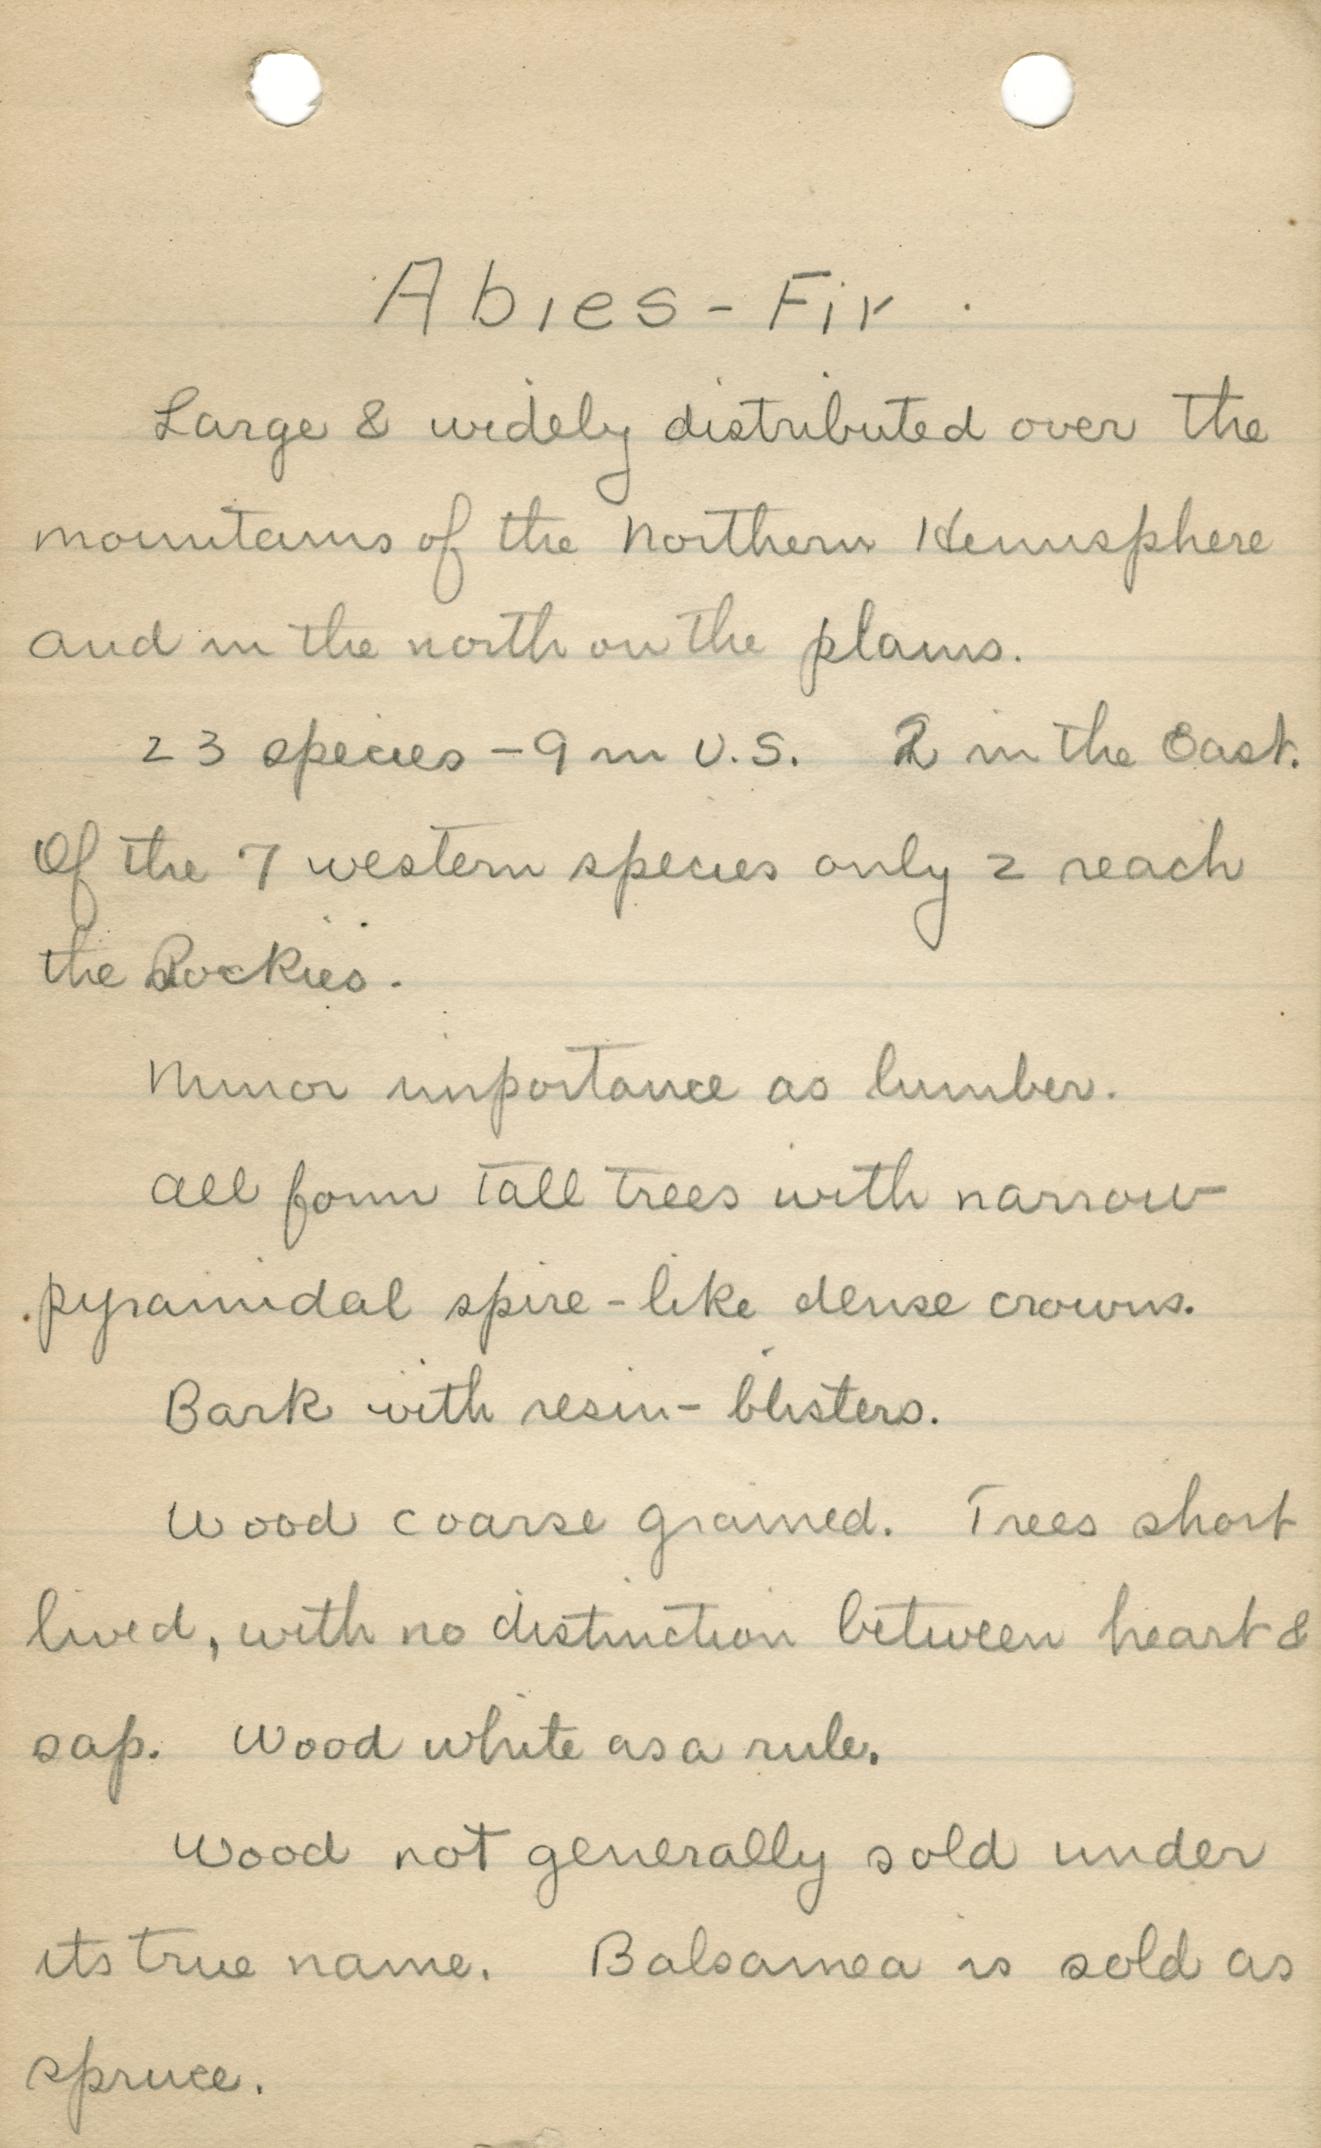 Abies - Fir.
Large & widely distributed over the
mountains of the Northern Hemisphere
and in the north on the plains.
23 species - 9 in U.S. 2 in the East.
Of the 7 western species only 2 reach
the Rockies.
Minor importance as lumber.
All form tall trees with narrow
pyramidal spire-like dense crowns.
Bark with resin-blisters.
Wood coarse grained. Trees short
lived, with no distinction between heart &
sap. Wood white as a rule.
Wood not generally sold under
its true name. Balsamea is sold as
spruce.